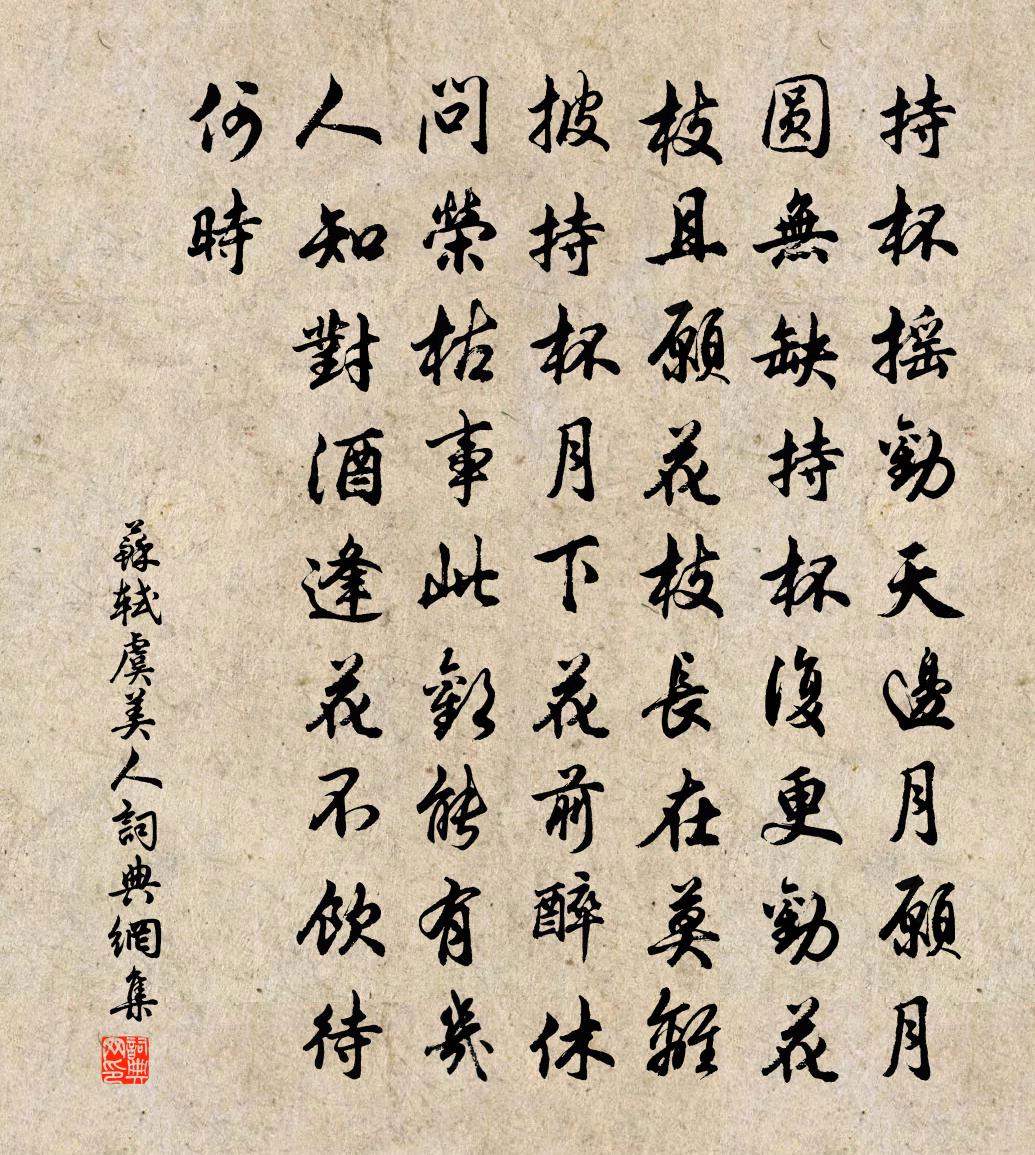 持杯摇勸天邊月願月
圓無缺持杯復更勸花
枝且願花枝長在莫離
披持杯月下花前醉休
問榮枯事此歡能有幾
人知對酒逢花不飲待
何時
蘇軾虞美人詞典網集
詞典网印